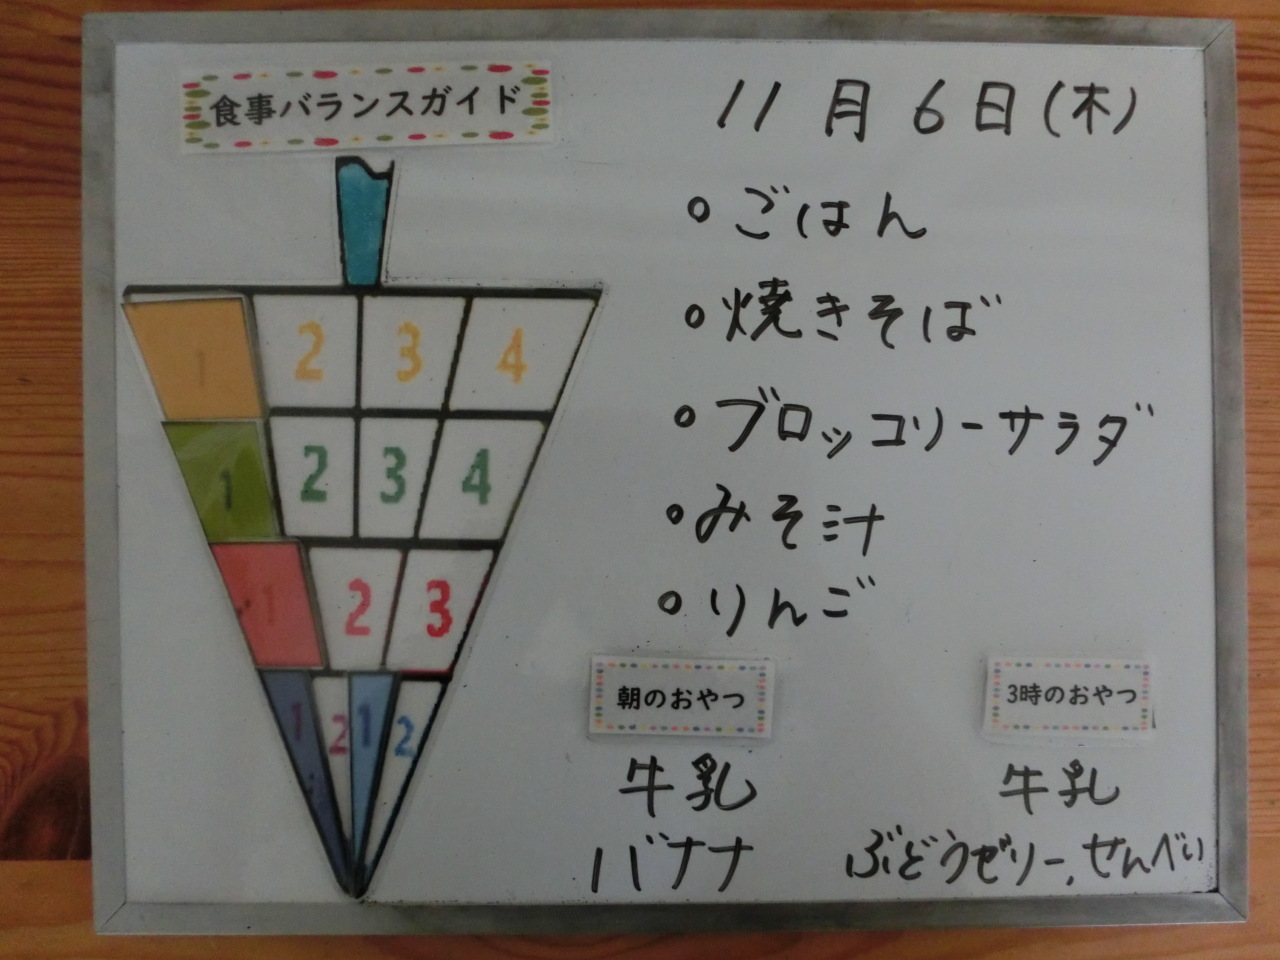 食事バランスガイド
1 2 3 4
1 2 3 4
1 2 3
1 2 1 2
11月6日(木)
・ごはん
・焼きそば
・ブロッコリーサラダ
・みそ汁
・りんご
朝のおやつ
牛乳
バナナ
3時のおやつ
牛乳
ぶどうゼリー,せんべい